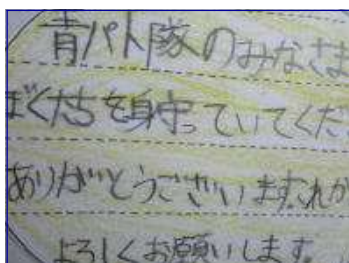 青パト隊のみなさま
ぼくたちを身守っていてくだ
ありがとうございますこれか
よろしくお願いします。